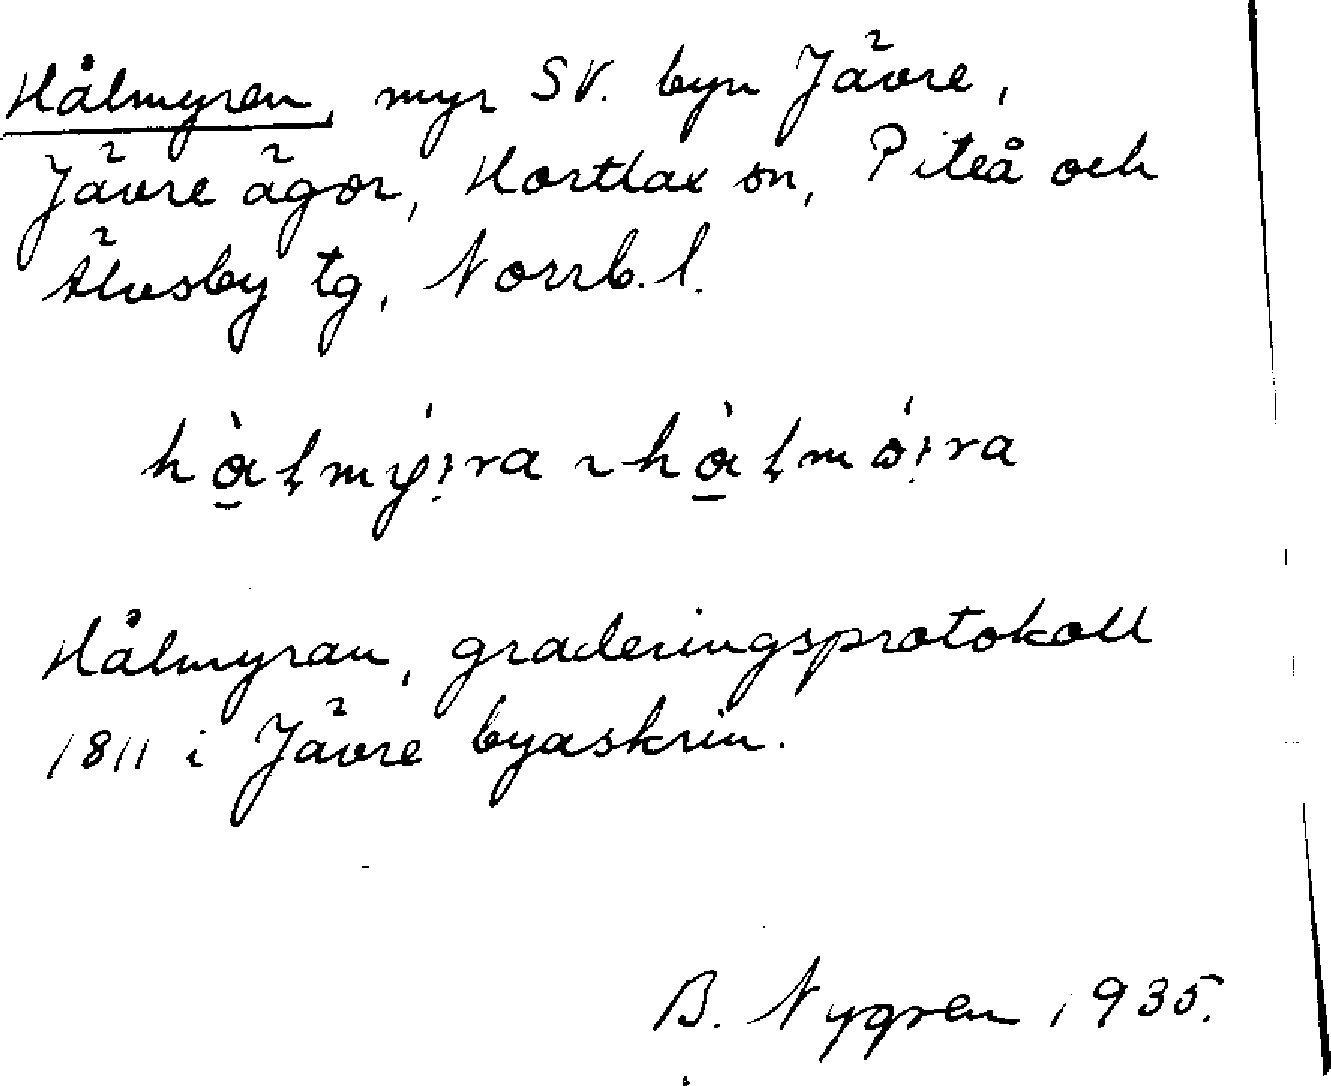 Hålmyren, myr SV. byn Jävre,
Jävre ägor, Hortlax sn, Piteå och
Älvsby tg, Norrb. l.
Hålmyran, graderingsprotokoll
1811 i Jävre byaskrin.
B. Nygren 1935.